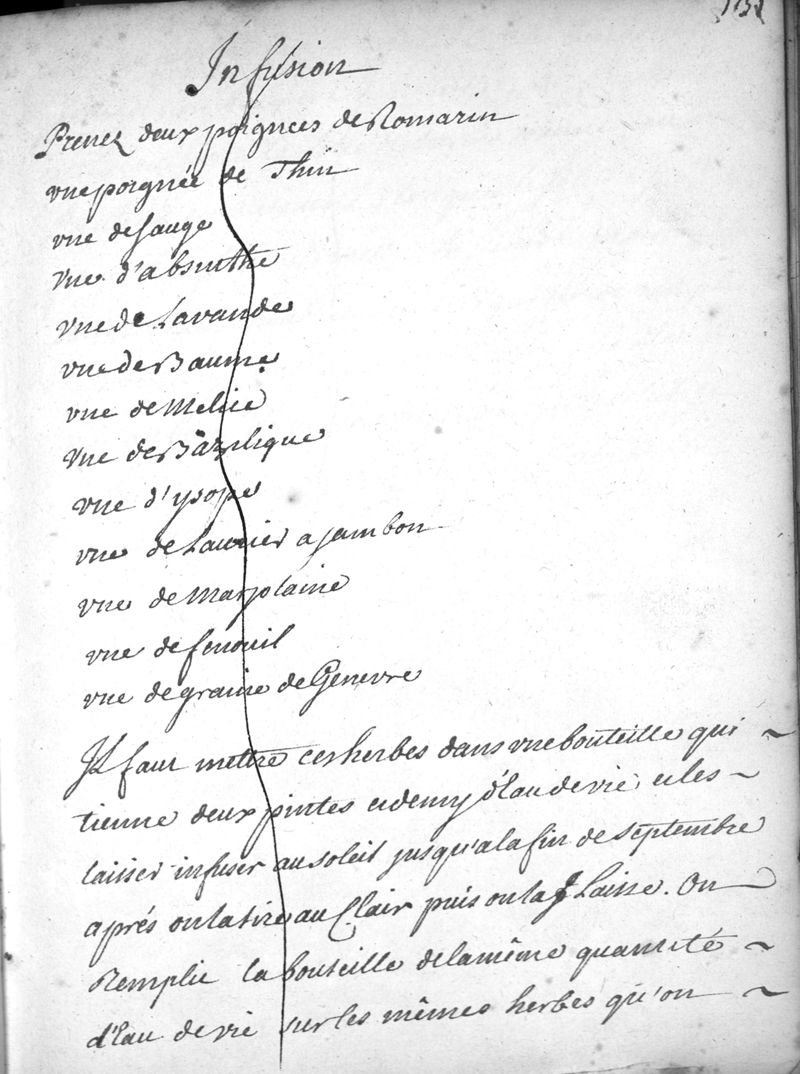 Infusion
Prenez deux poignees de Romarin
vne poignée de Thin
vne de sauge
vne d'absinthe
vne de Lavande
vne de Baume
vne de Melice
vne de Bazilique
vne d'ysope
vne de Laurier a jambon
vne de Marjolaine
vne de fenouil
vne de graine de Genevre
Il faut mettre ces herbes dans vne bouteille qui
tienne deux pintes et demy d'Eau de vie et les
laisser infuser au soleil jusqu'a la fin de septembre
aprés on la tire au Clair puis on la Laisse. On
Remplie la bouteille de la même quantité
d'Eau de vie sur les mêmes herbes qu'on